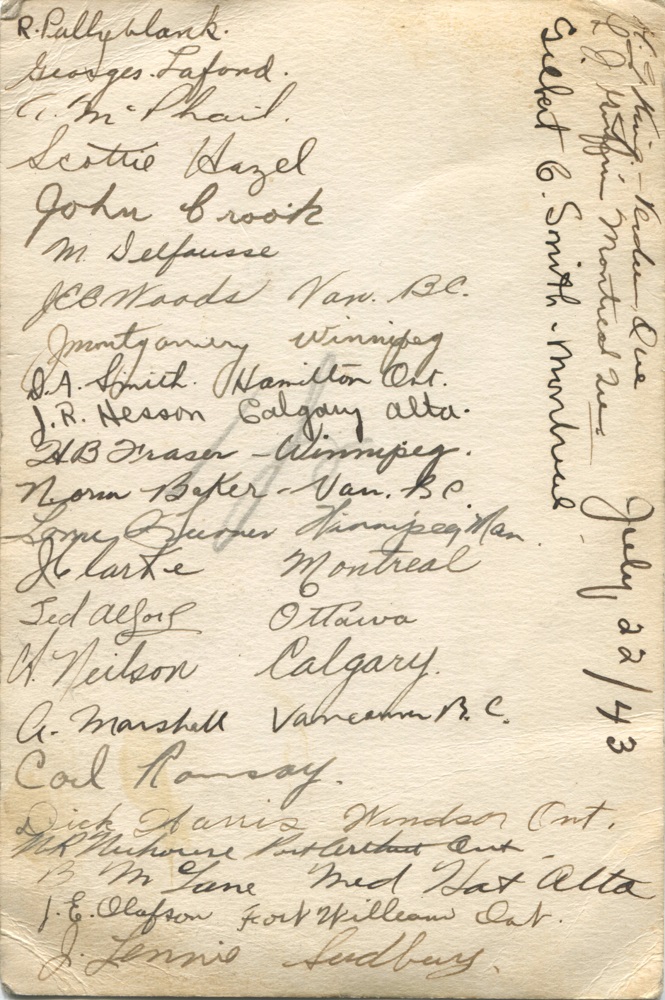 R. Pullyblank.
Georges Lafond.
A. McPhail.
Scottie Hazel
John Crook
M. Delfausse
JCC Woods Van. BC.
J Montgomery Winnipeg
D.A. Smith. Hamilton Ont.
J.R. Hesson Calgary Alta.
HB Fraser - Winnipeg.
Norm Baker - Van. BC
Winnipeg, Man.
J Clarke Montreal
Ted Ottawa
H. Neilson Calgary.
A. Marshall Vancouver B.C.
Carl Ramsay.
Dick Harris Windsor Ont.
Port Arthur Ont
B McLane Med Hat Alta
J.E. Olafson Fort William Ont.
J. Lennie Sudbury.
King - Que
Griffin Montreal
Gilbert C. Smith - Montreal
July, 22/43